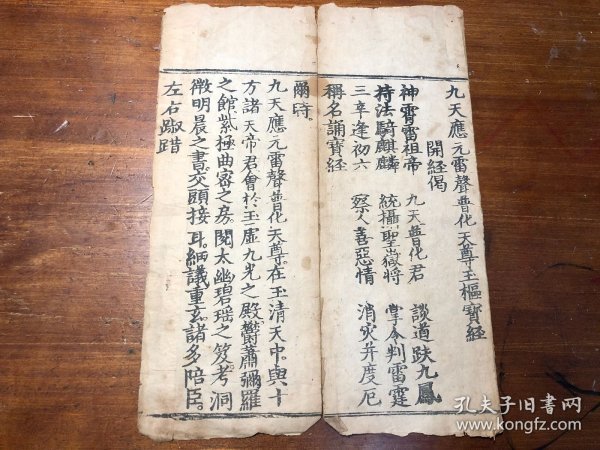 九天應元雷聲普化天尊玉樞寶經
開經偈
神霄雷祖帝 九天普化君 談道趺九鳳
持法騎麒麟 統攝聖嶽將 掌令判雷霆
三辛逢初六 察人善惡情 消灾并度厄
稱名誦寶經
爾時。
九天應元雷聲普化天尊。在玉清天中。與十
方諸天帝君會於玉虛九光之殿。鬱蕭彌羅
之館紫極曲密之房。閱太幽碧瑶之笈。考洞
微明晨之書。交頭接耳。細議重玄。諸多陪臣。
左右踧踖
孔夫子旧书网
www.kongfz.com